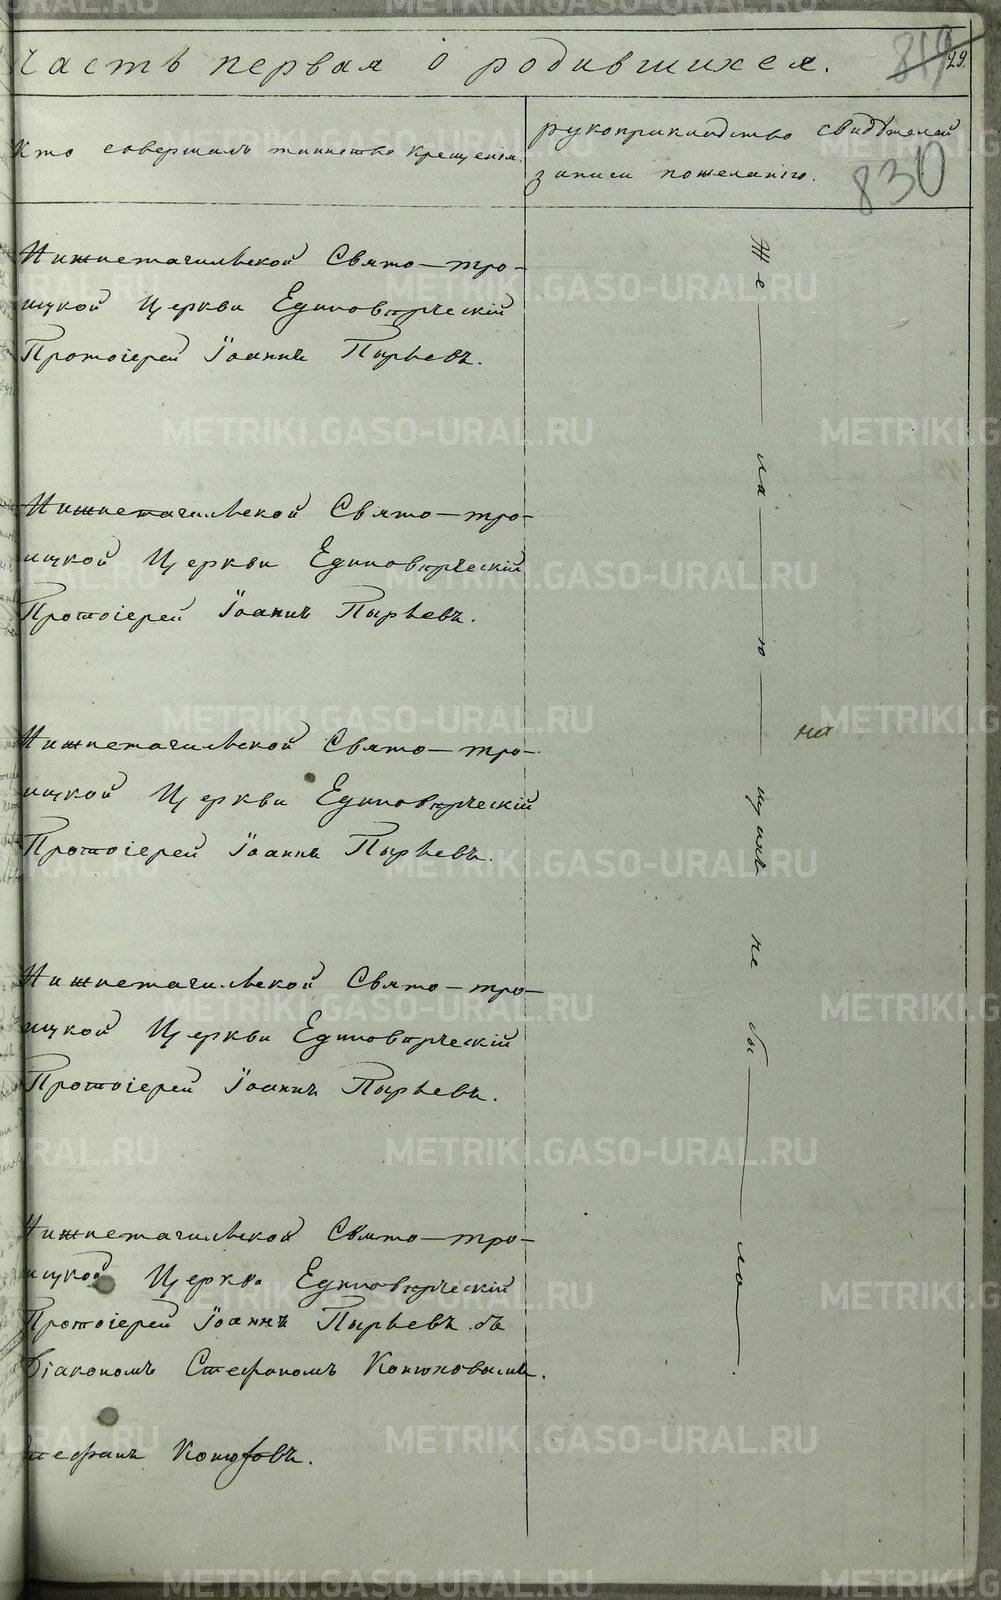 Часть первая о родившихся.
819 29.
Кто совершалъ таинство крещенія.
рукоприкладство свидѣтелей
записи по желанію.
830
Нижнетагильской Свято-тро-
ицкой Церкви Единовѣрческій
Протоіерей Іоаннъ Пырьевъ.
Нижнетагильской Свято-тро-
ицкой Церкви Единовѣрческій
Протоіерей Іоаннъ Пырьевъ.
Нижнетагильской Свято-тро-
ицкой Церкви Единовѣрческій
Протоіерей Іоаннъ Пырьевъ.
Нижнетагильской Свято-тро-
ицкой Церкви Единовѣрческій
Протоіерей Іоаннъ Пырьевъ.
Нижнетагильской Свято-тро-
ицкой Церкви Единовѣрческій
Протоіерей Іоаннъ Пырьевъ съ
Діакономъ Стефаномъ Конюховымъ.
Стефанъ Конюховъ.
Же—ла—ю—щихъ не бы—ло—.
на
METRIKI.GASO-URAL.RU